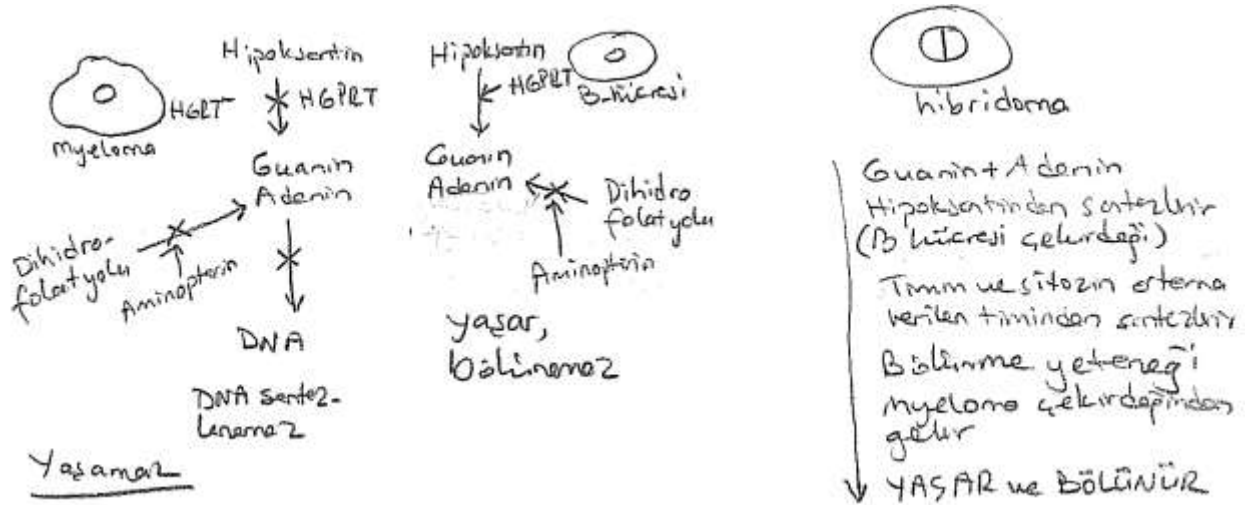 Hipoksantin
HGPRT
HGRT⁻
myeloma
Guanin
Adenin
Dihidro-
folat yolu
Aminopterin
DNA
DNA sentez-
lenemez
Yaşamaz
Hipoksantin
HGPRT
B-hücresi
Guanin
Adenin
Dihidro
folat yolu
Aminopterin
yaşar,
bölünemez
hibridoma
Guanin + Adenin
Hipoksantinden sentezlenir
(B hücresi çekirdeği)
Timin ve sitozin ortama
verilen timinden sentezlenir
Bölünme yeteneği
myeloma çekirdeğinden
gelir
YAŞAR ve BÖLÜNÜR